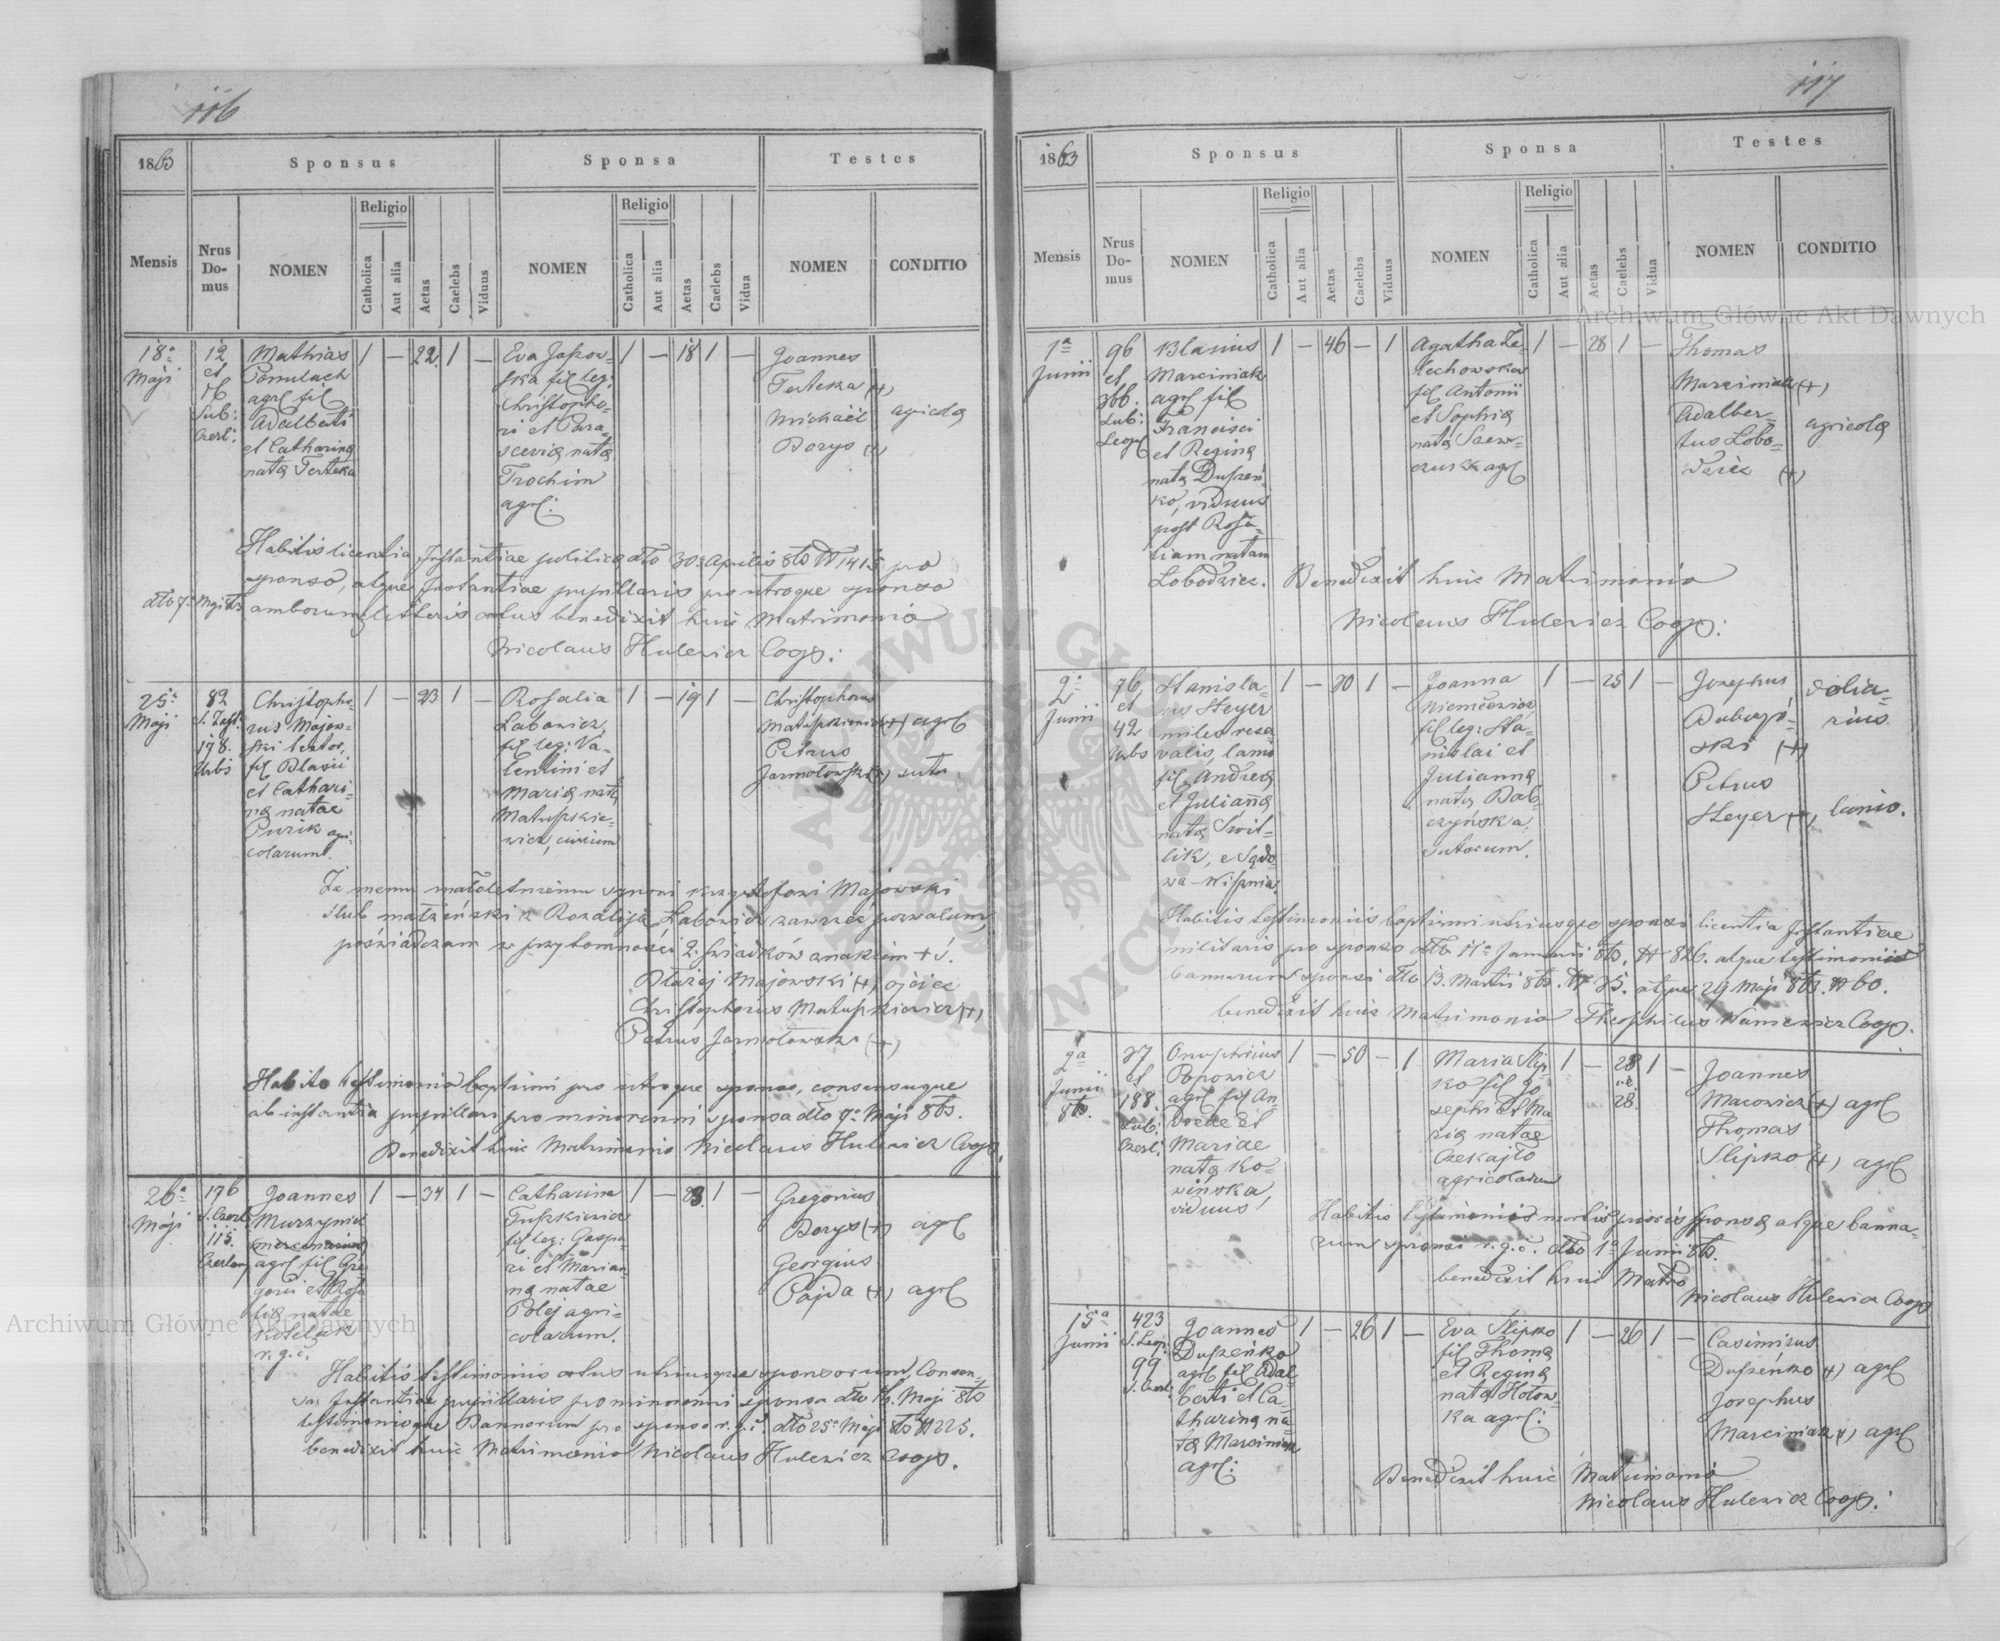 116
1863
Sponsus
Sponsa
Testes
Mensis
Nrus
Do-
mus
NOMEN
Religio
Catholica
Aut alia
Aetas
Caelebs
Viduus
NOMEN
Religio
Catholica
Aut alia
Aetas
Caelebs
Vidua
NOMEN
CONDITIO
18a
Maji
12
et
Sub:
Mathias
agrl fil
Adalberti
et Catharina
nata Terteka
1 — 22 1 —
Eva Jaszow-
ska fil leg:
Christopho-
ri et Para-
scevia nata
Trochim
agrl:
1 — 18 1 —
Joannes
Terteka (+)
Michaël
Borys (+)
agricola
Habitis licentia Instantiae politica dto 30. Aprilis 8ts N 1415 pro
sponso, atque Instantiae pupillaris pro utroque sponso
amborum litteris ortus benedixit huic Matrimonio
Nicolaus Hulewicz Coop:
25a
Maji
82
178.
Urbis
Christopho-
rus Majow-
ski textor,
fil Blasii
et Cathari-
na natae
Purik agri-
colarum.
1 — 23 1 —
Rosalia
Labowicz
fil leg: Va-
lentini et
Maria nata
Matuszkie-
wicz, civium
1 — 19 1 —
Christophorus
Matuszkiewicz (+) agrl
Petrus
Jarmolowski (+) sutor.
Ja memu małoletniemu synowi Krzysztofowi Majowski
ślub małżeński z Rozalija Labowicz zawrzeć pozwalam,
poświadczam w przytomności 2. świadków znakiem + ś.
Błażej Majowski (+) ojciec
Christophorus Matuszkiewicz (+)
Petrus Jarmolowski (+)
Habito testimonio baptismi pro utroque sponso, consensuque
ab instantia pupillari pro minorenni sponsa dto 7. Maji 8ts.
Benedixit huic Matrimonio Nicolaus Hulewicz Coop.
26a
Maji
176
115.
Joannes
Murzyniec
(mercenarius)
agrl fil Gre-
gorii et
natae
r. g. c.
1 — 34 1 —
Catharina
Tuszkiewicz
fil leg: Gaspa-
ri et Marian-
na natae
Polej agri-
colarum.
1 — 23 1 —
Gregorius
Borys (+) agrl
Georgius
Pajda (+) agrl
Habitis testimoniis ortus utriusque sponsorum, Consen-
su Instantiae pupillaris pro minorenni sponsa dto Maji 8ts
testimonioque Bannorum pro sponso r. g. c. dto 25. Maji 8ts N 225.
benedixit huic Matrimonio Nicolaus Hulewicz Coop.
117
1863
Sponsus
Sponsa
Testes
Mensis
Nrus
Do-
mus
NOMEN
Religio
Catholica
Aut alia
Aetas
Caelebs
Viduus
NOMEN
Religio
Catholica
Aut alia
Aetas
Caelebs
Vidua
NOMEN
CONDITIO
1a
Junii
96
et
366.
Sub:
Leop
Blasius
Marciniak
agrl fil
Francisci
et Regina
nata Duszeń-
ko, viduus
post Rosa-
liam natam
Lobodziec.
1 — 46 — 1
Agatha Le-
lechowska
fil Antonii
et Sophia
nata Szew-
czuk agrl
1 — 28 1 —
Thomas
Marciniak (+)
Adalber-
tus Lobo-
dziec (+)
agricola
Benedixit huic Matrimonio
Nicolaus Hulewicz Coop:
2a
Junii
76.
et
42
Urbs
Stanisla-
us Steyer
miles reser-
valis, lanio
fil Andrea
et Julianna
nata Świt-
lik, e Sądo-
wa-Wisznia.
1 — 30 1 —
Joanna
Niemczewicz
fil leg: Sta-
nislai et
Julianna
nata Bab-
czyńska
sutorum.
1 — 25 1 —
Josephus
ski (+)
Petrus
Steyer (+)
dolia-
rius.
lanio.
Habitis testimoniis baptismi utriusque sponsi licentia Instantiae
militaris pro sponso dto 11a Januarii 8ts. N 826. atque testimoniis
bannorum sponsi dto 13. Martii 8ts. N 35. atque 29 Maji 8ts. N 60.
benedixit huic Matrimonio Theophilus Coop.
9a
Junii
8ts.
37
et
188.
Sub:
Onuphrius
Popowicz
agrl fil An-
dreae et
Mariae
nata Ko-
wińska,
viduus
1 — 50 — 1
Maria Slip-
ko fil Jo
sephi et Ma-
ria natae
Czekajło
agricolarum
1 — 28 1 —
28.
Joannes
Macowicz (+) agrl
Thomas
Slipko (+) agrl
Habitis testimoniis mortis prioris sponsa atque banno-
rum sponsi r. g. c. dto 1a Junii 8ts.
benedixit huic Matrio
Nicolaus Hulewicz Coop
15a
Junii
423
S. Leop:
99
Joannes
Duszeńko
agrl fil Adal-
berti et Ca-
tharina na-
ta Marciniak
agrl:
1 — 26 1 —
Eva Slipko
fil Thoma
et Regina
nata Hołow-
ka agrl:
1 — 26 1 —
Casimirus
Duszeńko (+) agrl
Josephus
Marciniak (+) agrl
Benedixit huic Matrimonio
Nicolaus Hulewicz Coop:
Archiwum Główne Akt Dawnych
Archiwum Główne Akt Dawnych